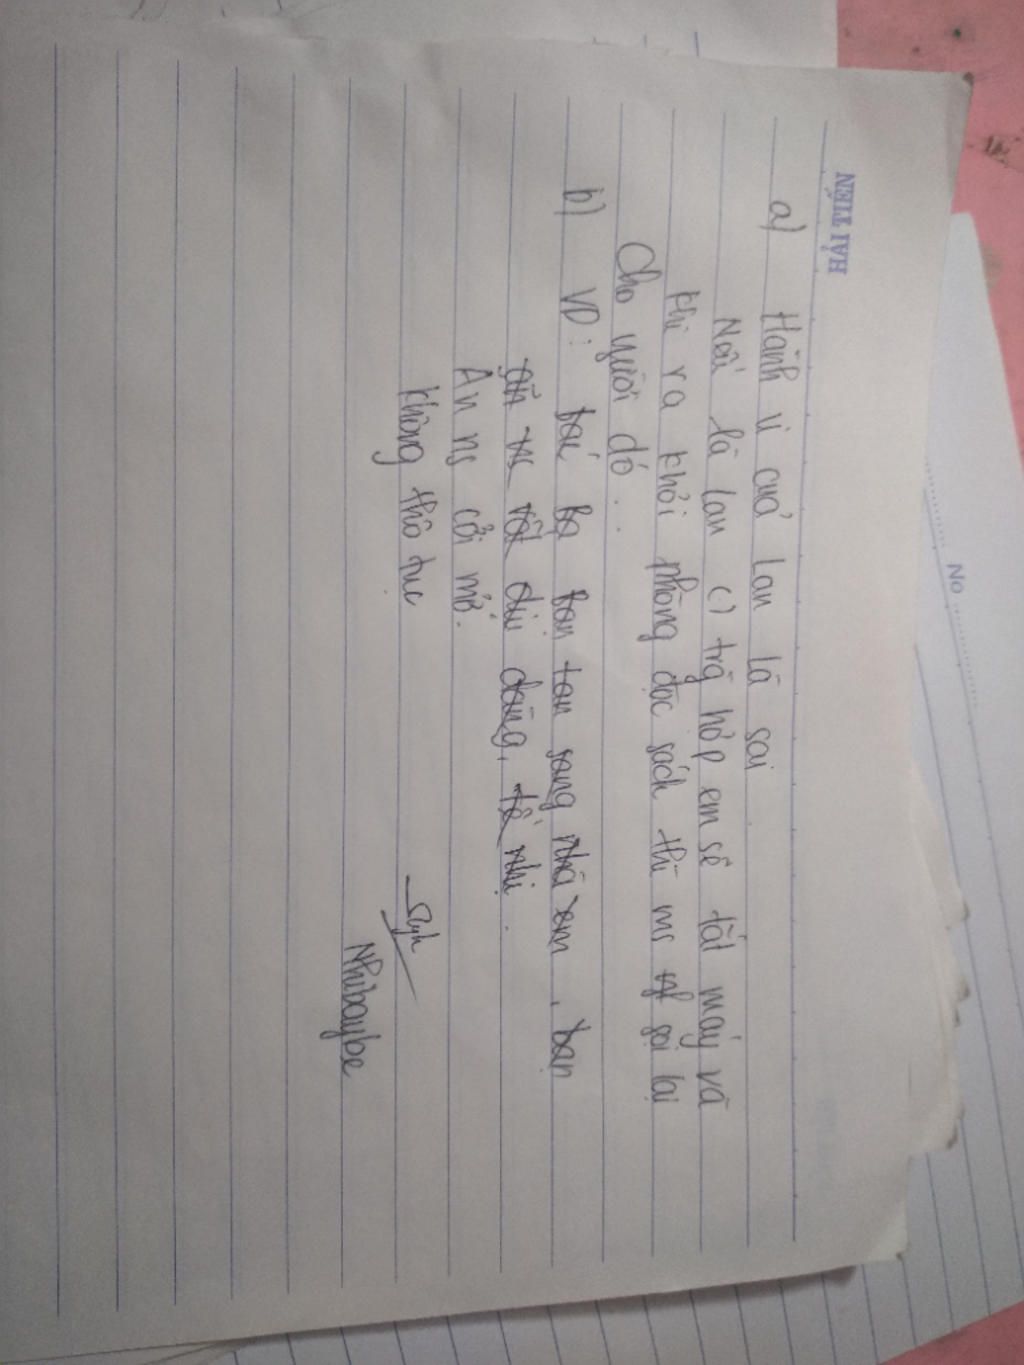 HẢI TIẾN
No
a) Hành vi của Lan là sai
Nếu là lan () trg hợp em sẽ tắt máy và
khi ra khỏi phòng đọc sách thì ms gọi lại
Cho người đó..
b) VD: Bạn lan sang nhà em, bạn
ăn ns rất dịu dàng, tế nhị.
Ăn ns cởi mở.
không thô tục
Nhibaybe